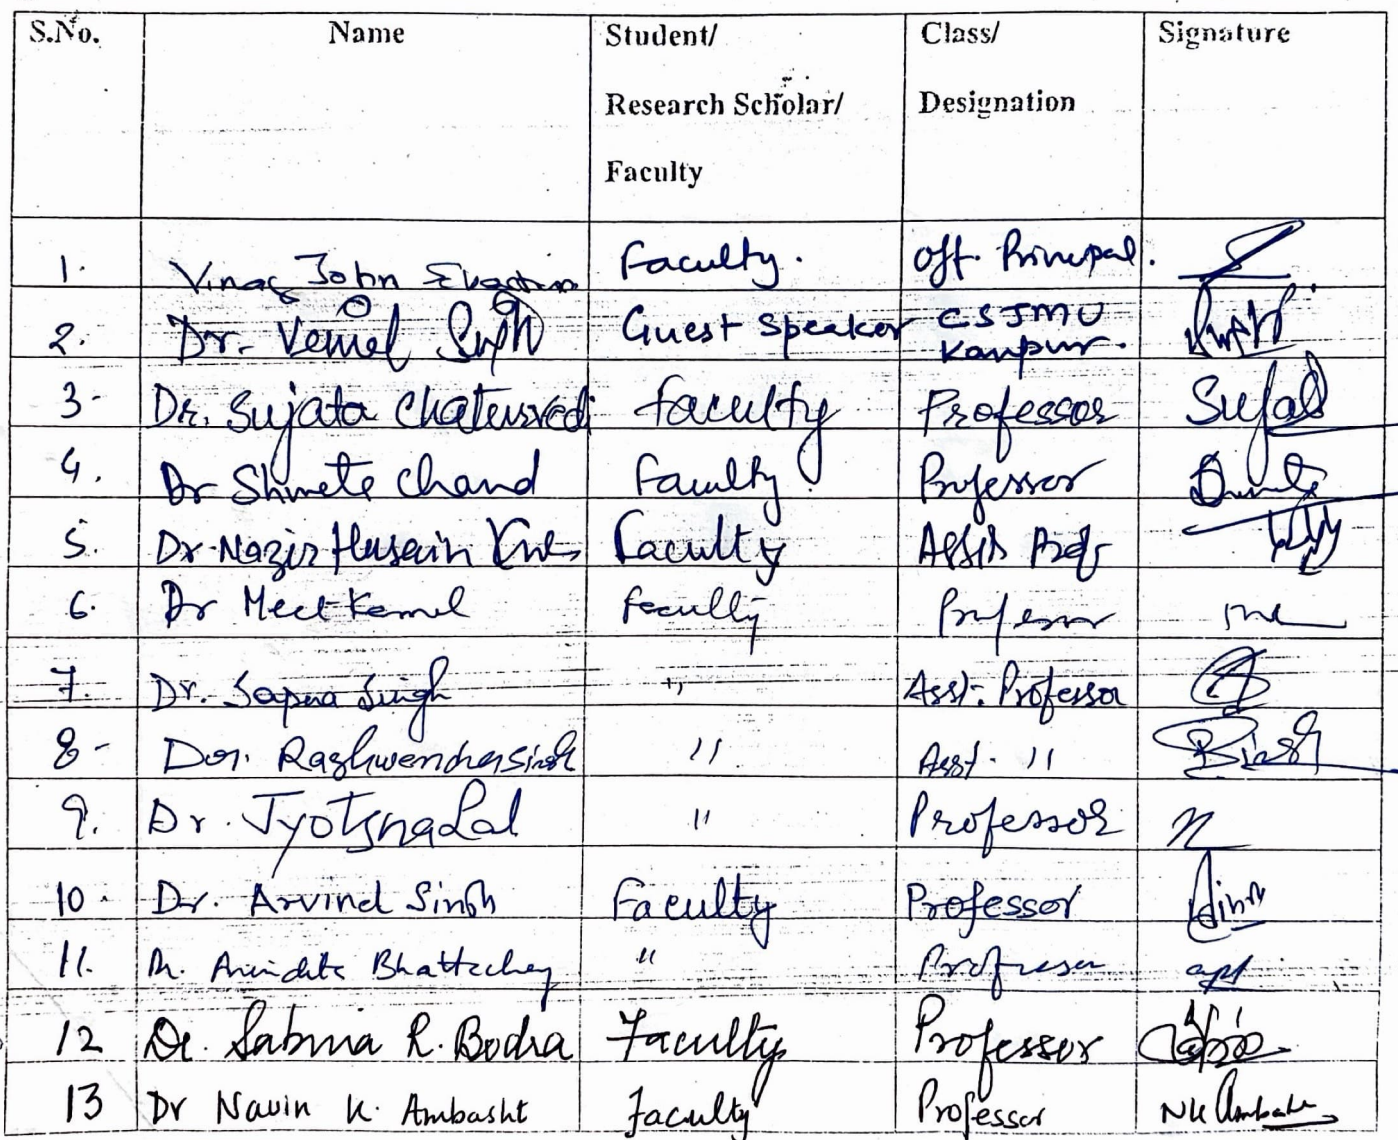 S.No. Name Student/ Class/ Signature
Research Scholar/ Designation
Faculty
1. Vinay John Faculty. Off. Principal.
2. Dr. Vemel Singh Guest Speaker CSJMU
Kanpur.
3- Dr. Sujata Chaturvedi faculty Professor Sujat
4. Dr Shweta Chand Faculty. Professor
5. Dr Nazir Husain Faculty Asstt Prof
6. Dr Meet Kamal faculty Professor
7. Dr. Sapna Singh " Asst. Professor
8- Dr. Raghwendra Singh " Asst. "
9. Dr. Jyotsna Lal " Professor
10. Dr. Arvind Singh Faculty Professor
11. Dr. Anindita Bhattacharya " Professor
12 Dr. Sabina R. Bodra Faculty Professor
13 Dr Navin K. Ambasht Faculty Professor NK Ambasht